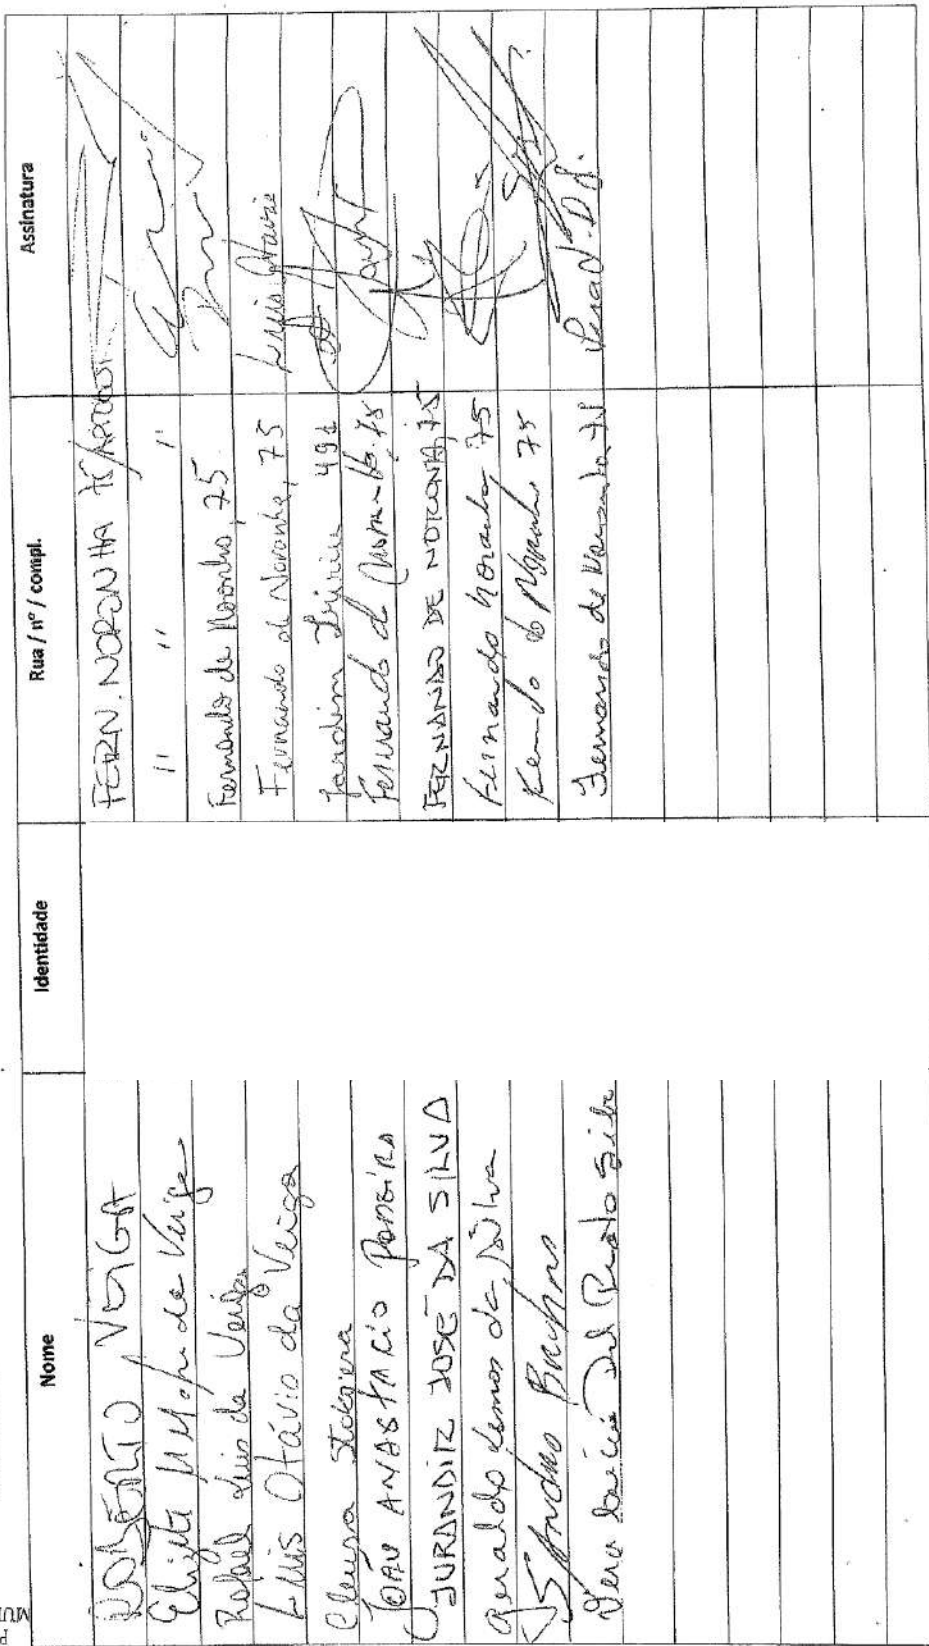 Nome Identidade Rua / nº / compl. Assinatura
ROBERTO VEIGA FERN. NORONHA 75
da Veiga " " "
Rafael Luis da Veiga Fernando de Noronha, 75
Luis Otávio da Veiga Fernando de Noronha, 75 Luis Otavio
Cleusa Jardim 491
JOÃO ANASTACIO Fernando de 75
JURANDIR JOSÉ DA SILVA FERNANDO DE NORONHA, 75
Geraldo Lemos da Silva Fernando Noronha 75
Fernando de Noronha 75
Vera Lucia Del Prado Silva Fernando de Noronha